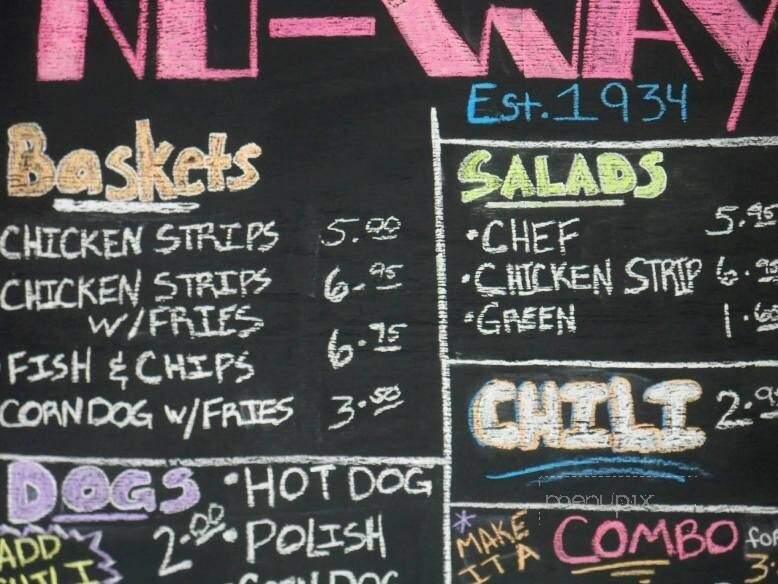 NU-WAY
Est. 1934
Baskets
CHICKEN STRIPS 5.00
CHICKEN STRIPS 6.95
W/FRIES
FISH & CHIPS 6.75
CORNDOG W/FRIES 3.50
DOGS
ADD
CHILI
2.00
•HOT DOG
•POLISH
•CORN DOG
SALADS
•CHEF 5.95
•CHICKEN STRIP 6.95
•GREEN 1.60
CHILI 2.95
*MAKE
IT A
COMBO for
menupix